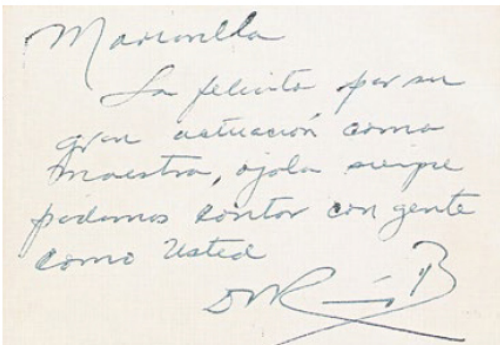 Marianella
La felicito por su
gran actuación como
maestra, ojala siempre
podamos contar con gente
como Usted